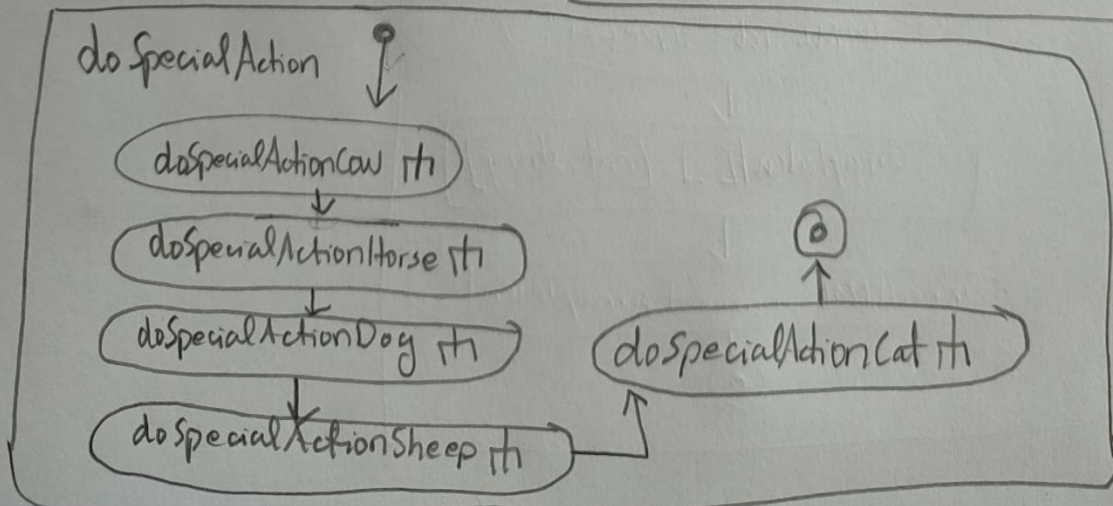 doSpecialAction
doSpecialActionCow
doSpecialActionHorse
doSpecialActionDog
doSpecialActionSheep
doSpecialActionCat